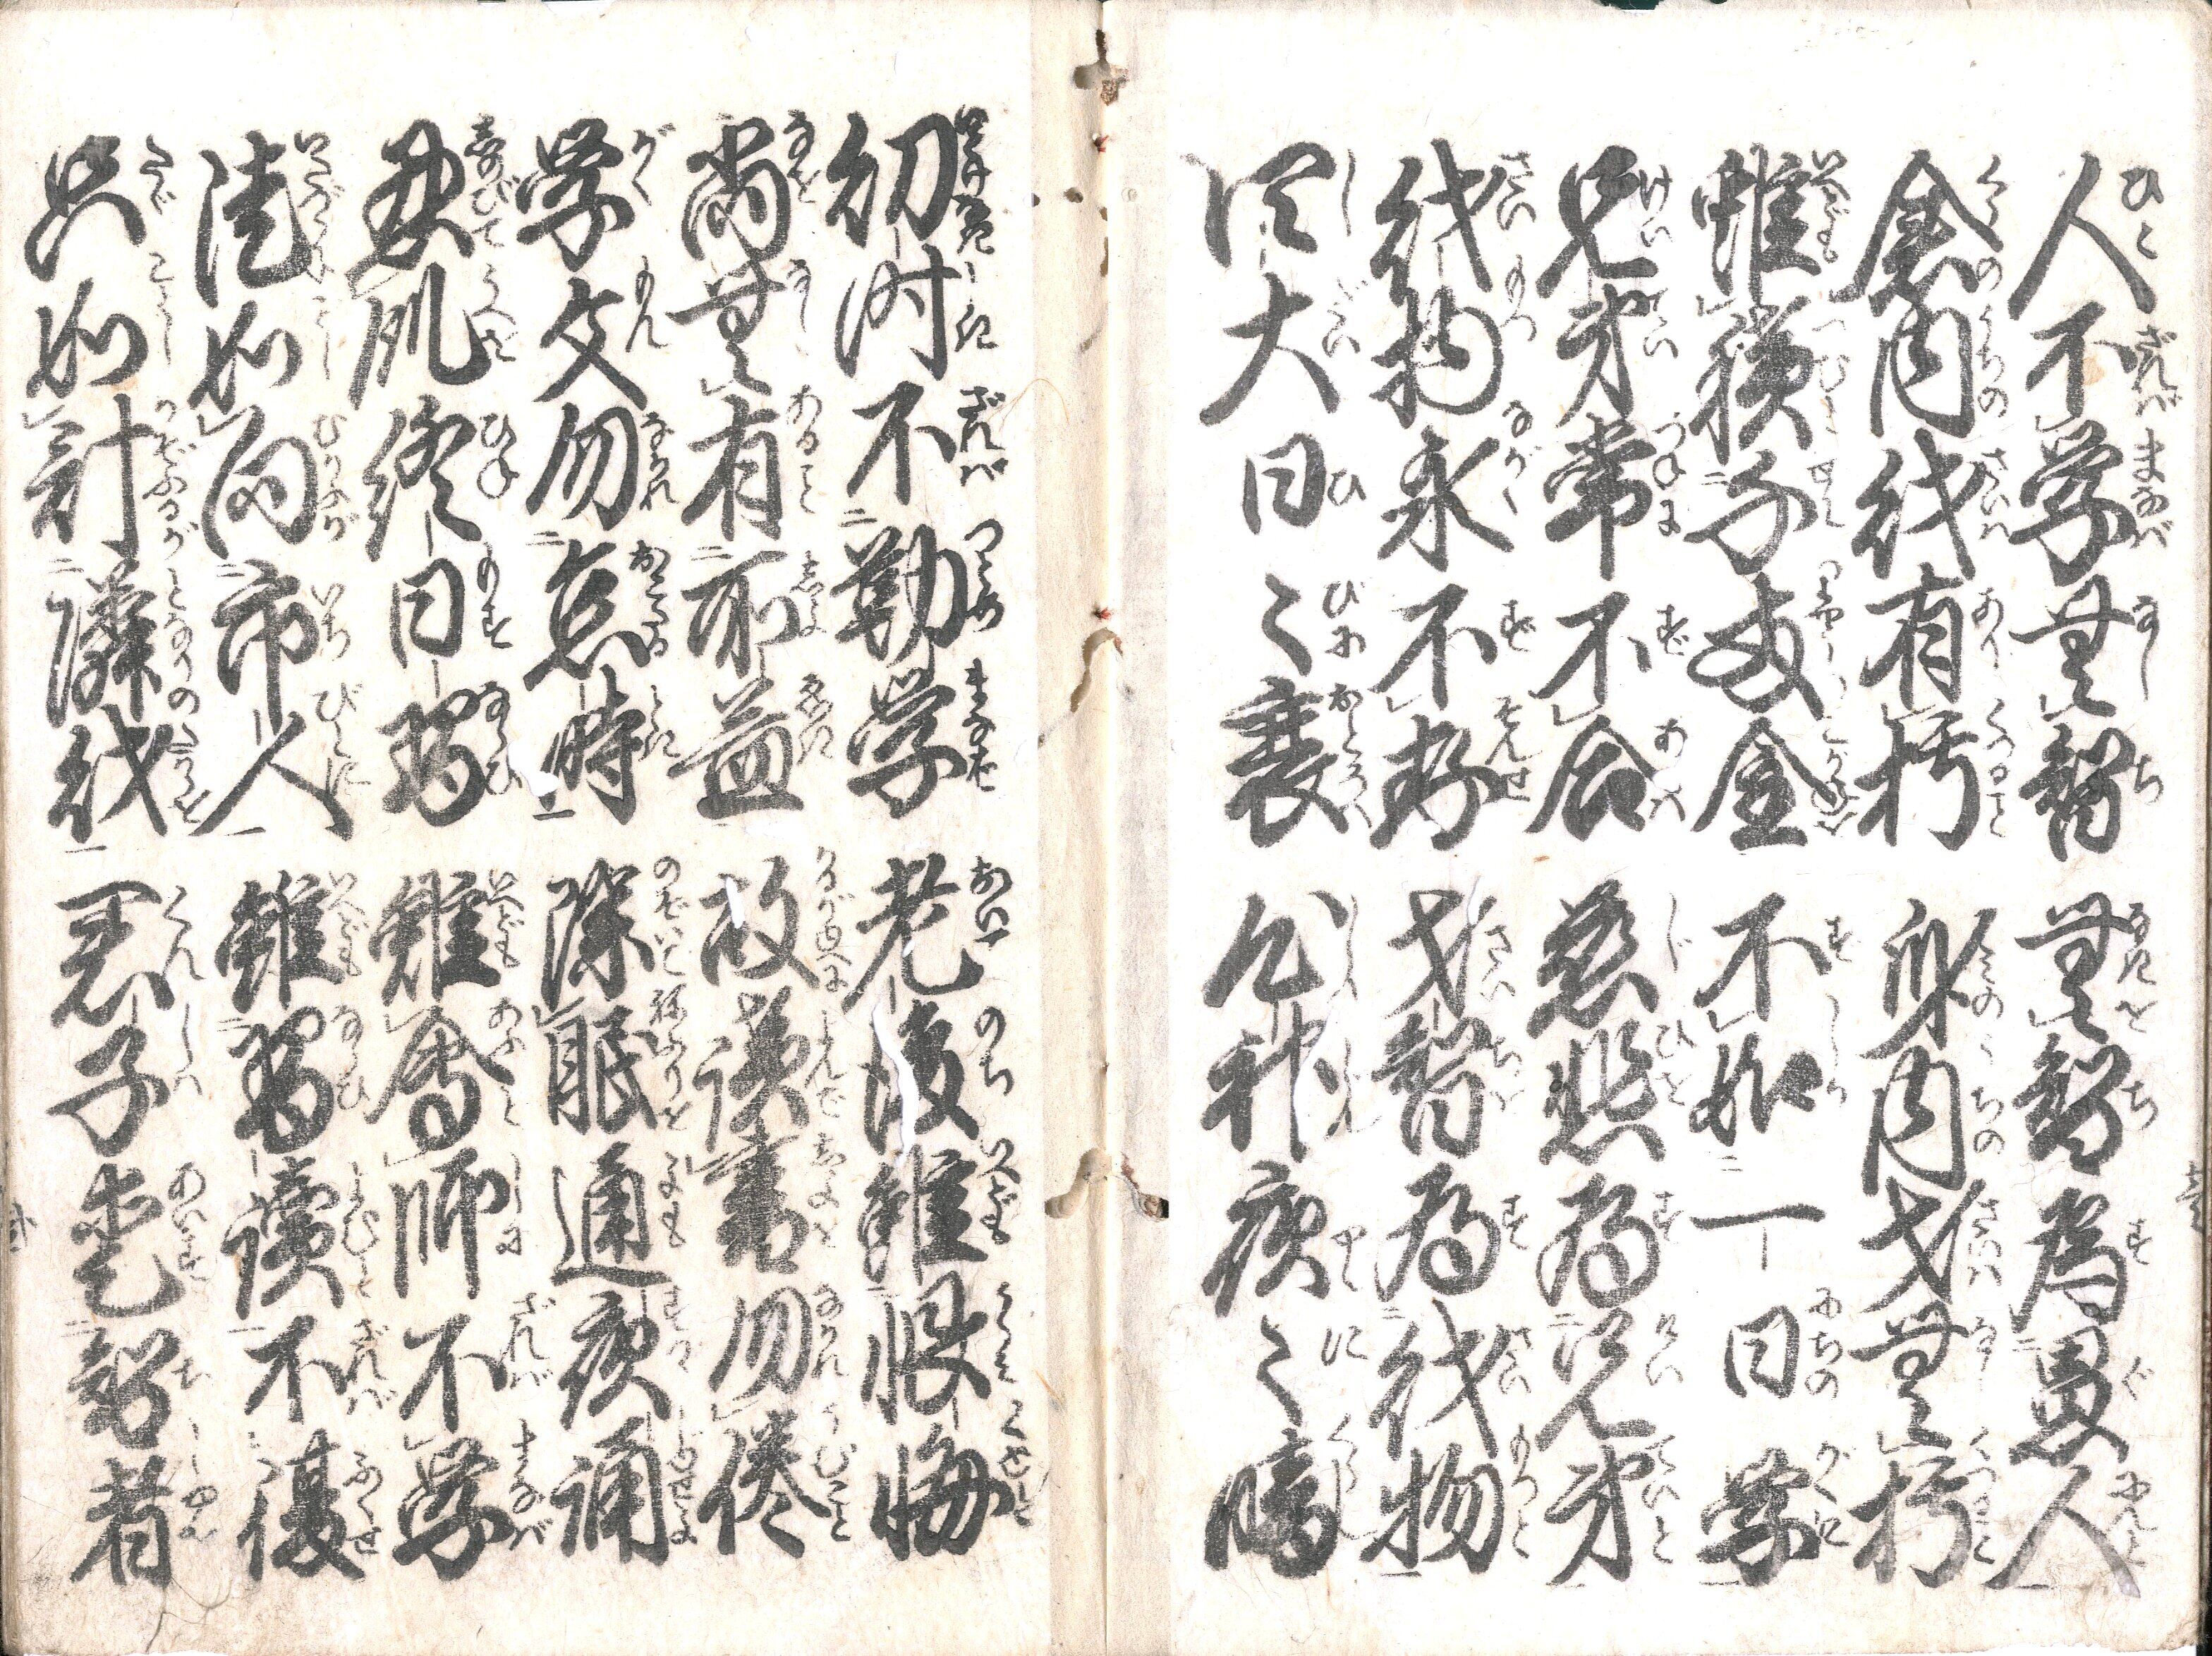 人不学無智　無智為愚人
倉内財有朽　身内才無朽
雖積千両金　不如一日学
兄弟常不合　慈悲為兄弟
財物永不存　才智為財物
四大日々衰　心神夜々暗
幼時不勤学　老後雖恨悔
尚無有所益　故読書勿倦
学文勿怠時　除眠通夜誦
忍飢終日習　雖會師不学
徒如向市人　雖習讀不復
只如計隣財　君子愛智者